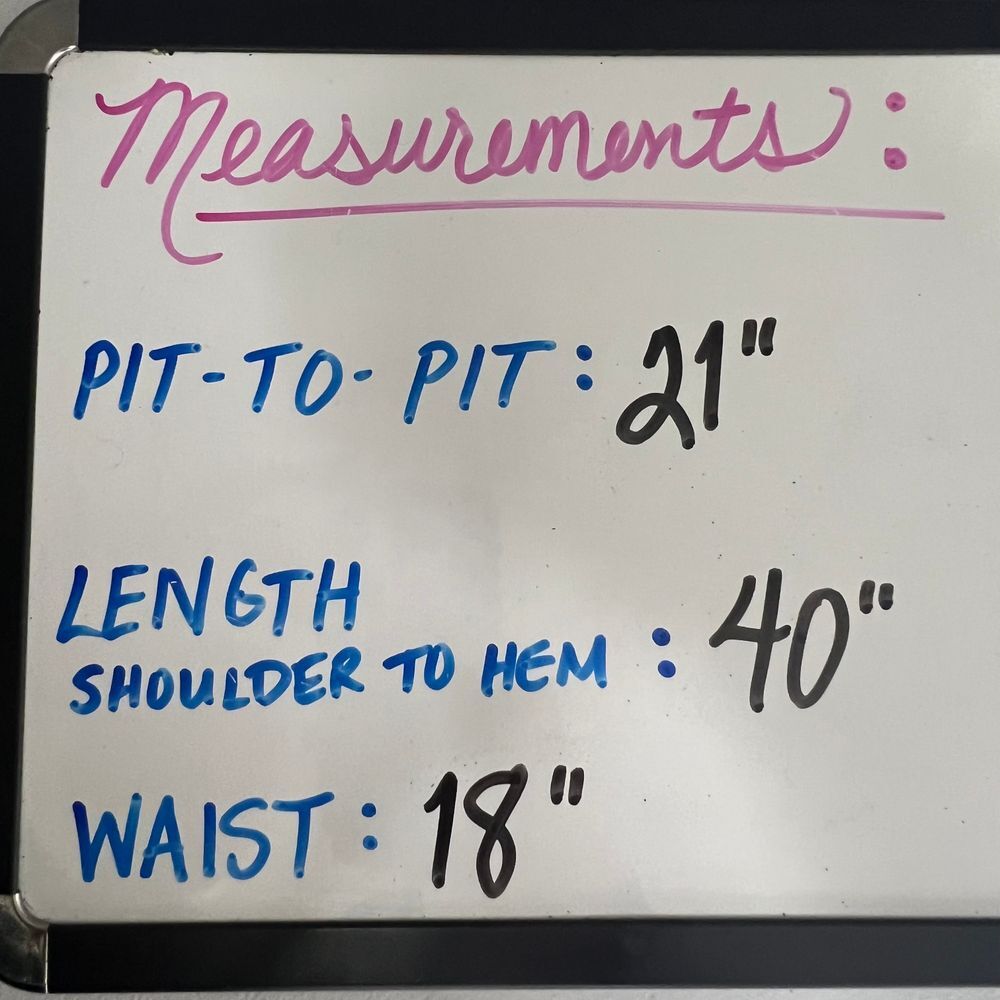 Measurements:
PIT-TO-PIT: 21"
LENGTH
SHOULDER TO HEM: 40"
WAIST: 18"